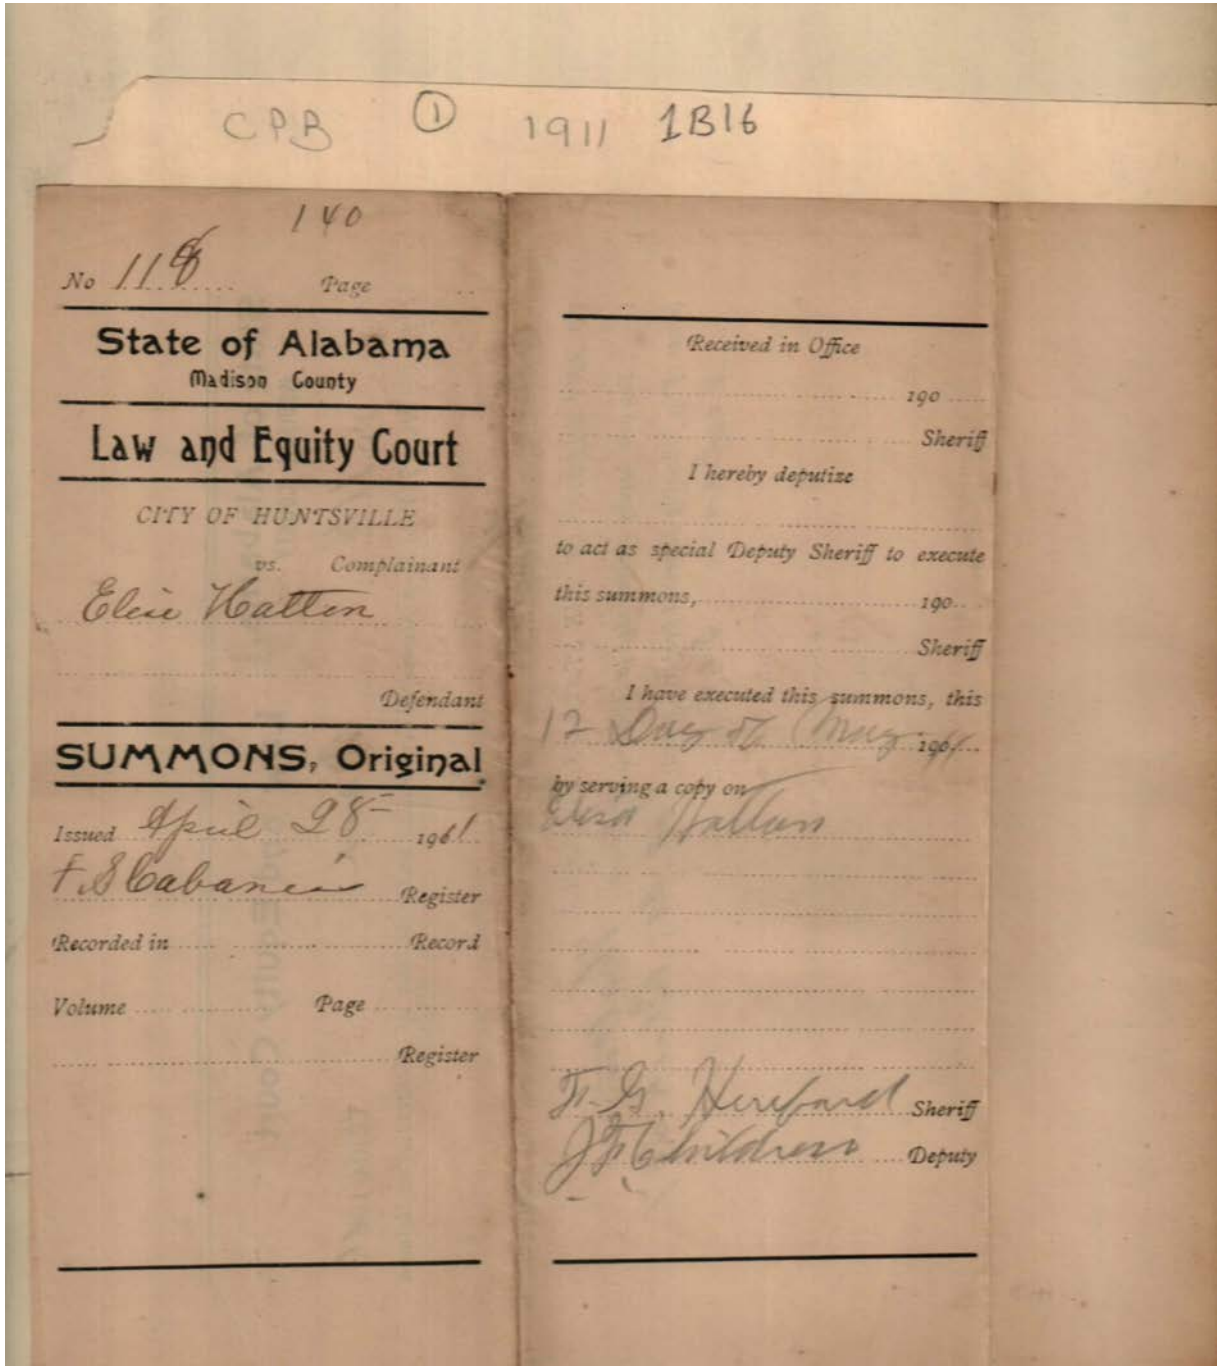 CPB ① 1911 1B16
140
No 118 Page
State of Alabama
Madison County
Law and Equity Court
CITY OF HUNTSVILLE
vs. Complainant
Elsie Hatten
Defendant
SUMMONS, Original
Issued April 28 1911
F. S. Cabaniss Register
Recorded in Record
Volume Page
Register
Received in Office
190
Sheriff
I hereby deputize
to act as special Deputy Sheriff to execute
this summons, 190
Sheriff
I have executed this summons, this
12 Day of May 1911
by serving a copy on
Hatten
F. G. Hereford Sheriff
J F Childress Deputy